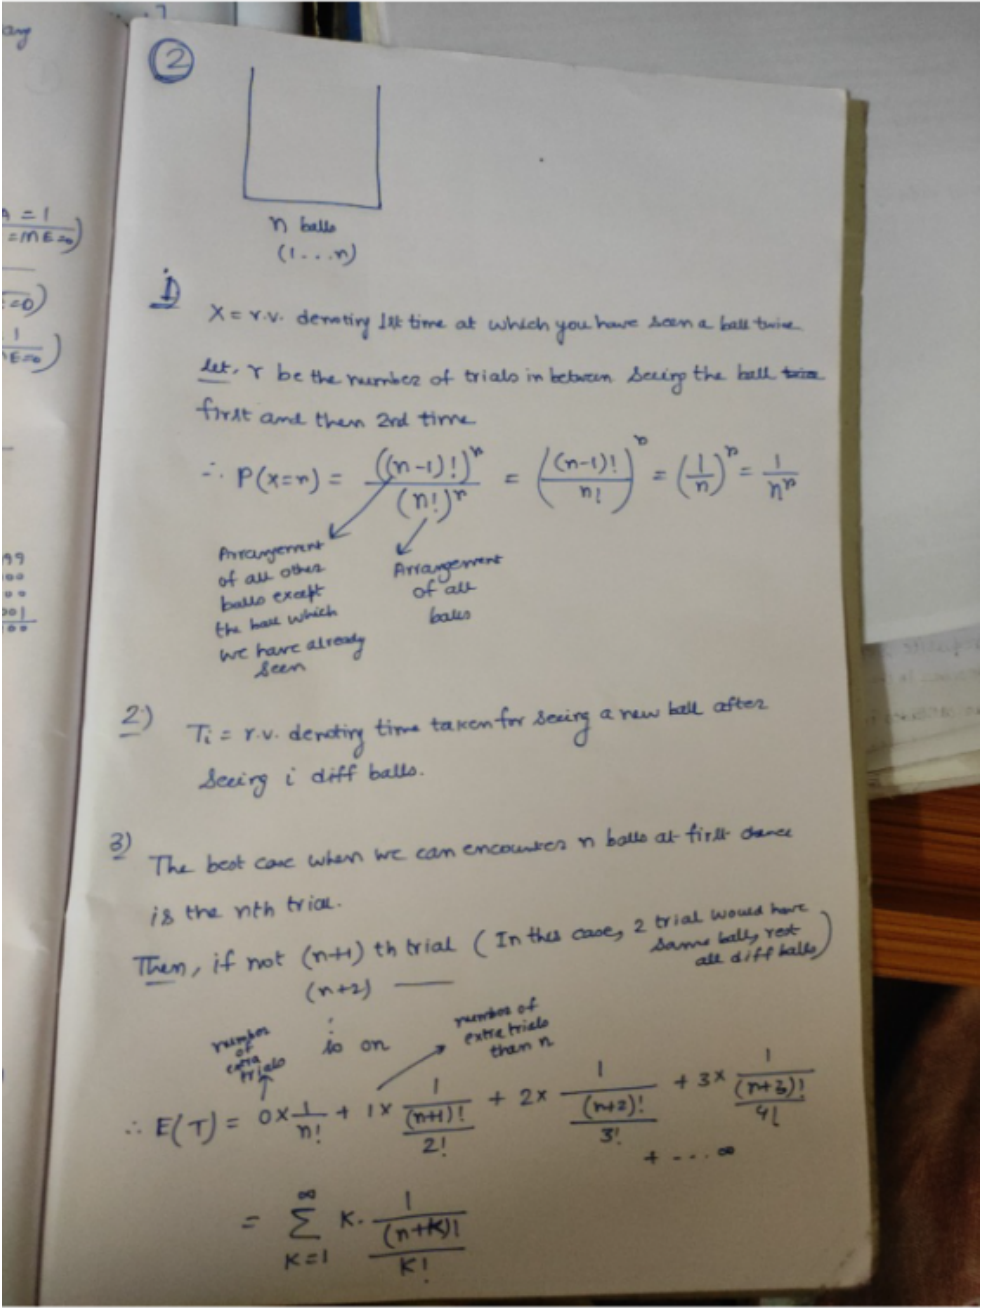 ang
A = 1
= m E=0)
E=0)
1
mE=0)
99
00
00
001
00
②
n balls
(1...n)
1)
X = r.v. denoting 1st time at which you have seen a ball twice
Let, r be the number of trials in between seeing the ball
first and then 2nd time
∴ P(x=r) = ((n-1)!)^r / (n!)^r = ((n-1)! / n!)^r = (1/n)^r = 1/n^r
Arrangement of all other balls except the ball which we have already seen
Arrangement of all balls
2) Ti = r.v. denoting time taken for seeing a new ball after
seeing i diff balls.
3) The best case when we can encounter n balls at first chance
is the nth trial.
Then, if not (n+1) th trial (In this case, 2 trial would have same ball, rest all diff balls)
(n+2) ——
⋮
so on
number of extra trials
number of extra trials than n
∴ E(T) = 0 × 1/n! + 1 × 1/((n+1)!/2!) + 2 × 1/((n+2)!/3!) + 3 × 1/((n+3)!/4!)
+ - ... ∞
= ∞ Σ K=1 K . 1/((n+K)!/K!)